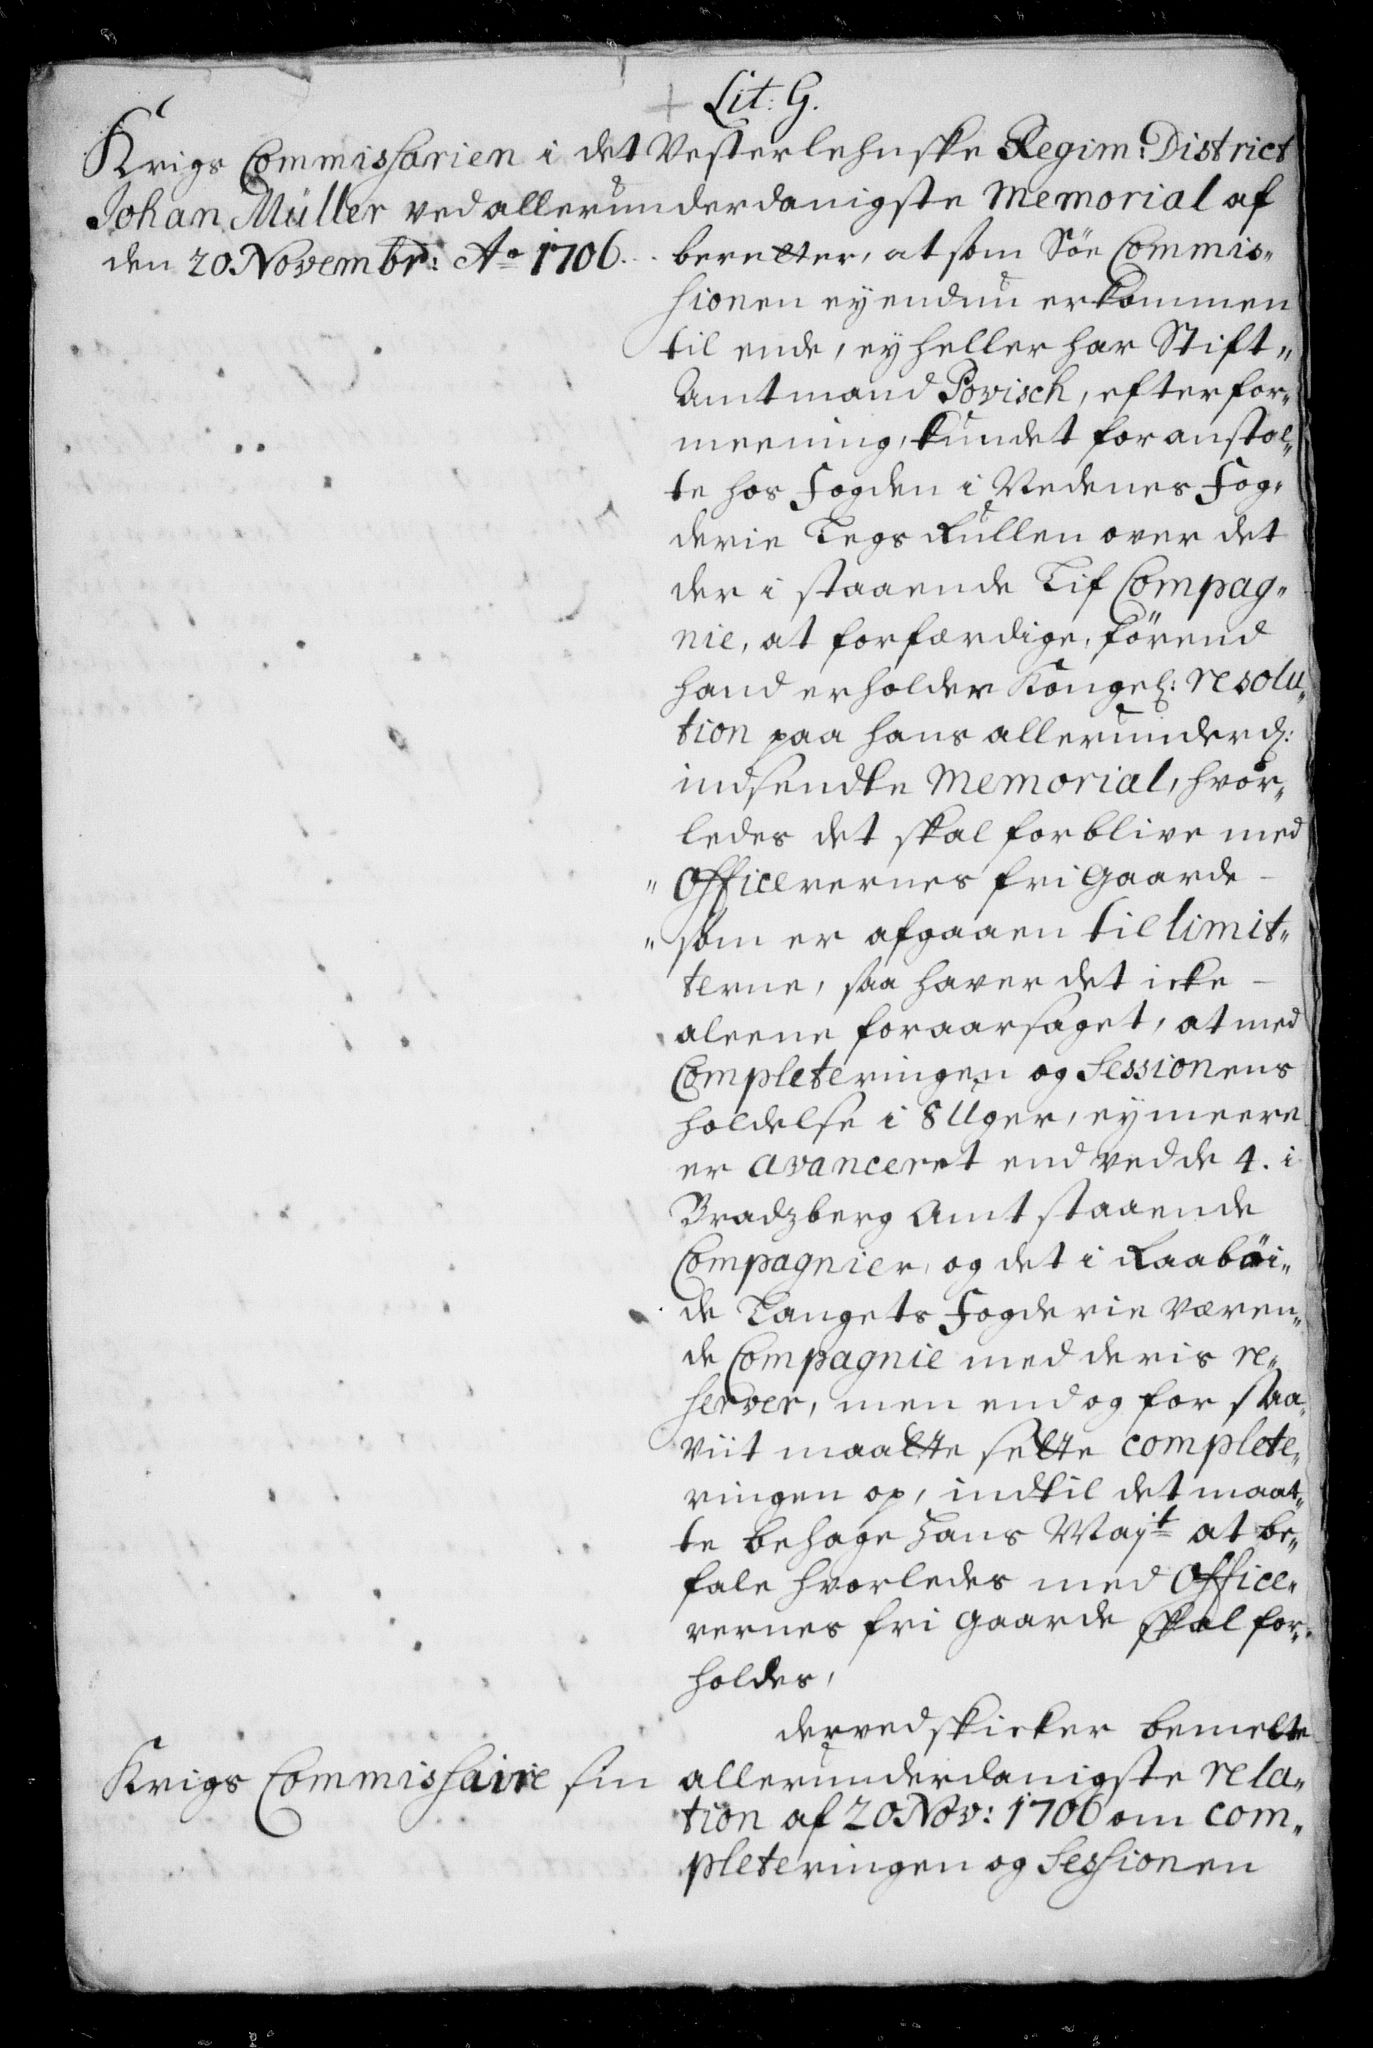 Lit: G.
Krigs Commissarien i det Vesterlehnske Regim: District
Johan Müller ved allerunderdanigste Memorial af
den 20 Novembr: Ao 1706. beretter, at som Söe Commis„
sionen ey endnu er kommen
til ende, ey heller har Stift„
Amtmand Povisch, efter for„
meening, kundet foranstal„
te hos Fogden i Nedenes Fog„
derie Legs Rullen over det
der i staaende Lif Compag„
nie, at forfærdige, förend
hand erholder Kongel: resolu„
tion paa hans allerunderd:
indsendte Memorial, hvor„
ledes det skal forblive med
„ Officerernes fri Gaarde
„ som er afgaaen til limit„
terne, saa haver det icke
aleene foraarsaget, at med
Completeringen og Sessionens
holdelse i 8 Uger, ey meere
er avanceret end ved de 4. i
Bradzberg Amt staaende
Compagnier, og det i Raaböi„
de Laugets Fogderie væren„
de Compagnie med deris re„
server, men end og for saa„
viit maatte sette complete„
ringen op, indtil det maat„
te behage Hans Mayt at be„
fale hvorledes med Office„
rernes fri Gaarde skal for„
holdes,
derved skicker bemelte
Krigs Commissaire sin allerunderdanigste rela„
tion af 20 Nov: 1706 om com„
pleteringen og Sessionen